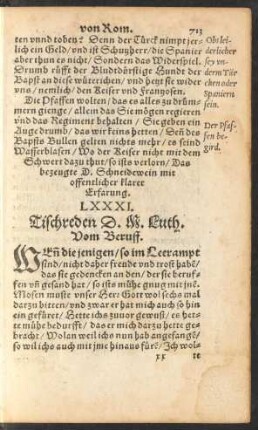 von Rom. 713
ten vnnd toben? Denn der Türck nimpt jer-
lich ein Geld/ vnd ist Schutzherr/ die Spanier
aber thun es nicht/ Sondern das Widerspiel.
Drumb rüfft der Blutdürstige Hundt der
Bapst an diese wüterichen/ vnd hetzt sie wider
vns/ nemlich/ den Keiser vnd Frantzosen.
Die Pfaffen wolten/ das es alles zu drüm-
mern gienge/ allein das Sie mögen regieren
vnd das Regiment behalten/ Sie geben ein
Auge drumb/ das wir keins hetten/ Deñ des
Bapsts Bullen gelten nichts mehr/ es seind
Wasserblasen/ Wo der Keiser nicht mit dem
Schwert dazu thut/ so ists verlorn/ Das
bezeugte D. Schneidewein mit
offentlicher klarer
Erfarung.
Der Pfaf-
fen be-
gird.
LXXXI.
Tischreden D. M. Luth.
Vom Beruff.
WEñ die jenigen/ so im Leerampt
seind/ nicht daher freude vnd trost habē/
das sie gedencken an den/ der sie beruf-
fen vñ gesand hat/ so ists mühe gnug mit jnē.
Mosen muste vnser Her: Gott wol sechs mal
darzu bitten/ vnd zwar er hat mich auch so hin
ein gefüret/ Hette ichs zuuor gewust/ es het-
te mühe bedurfft/ das er mich darzu hette ge-
bracht/ Wolan weil ichs nun hab angefangē/
so wil ichs auch mit jme hinaus fürē/ Ich wol-
xx te